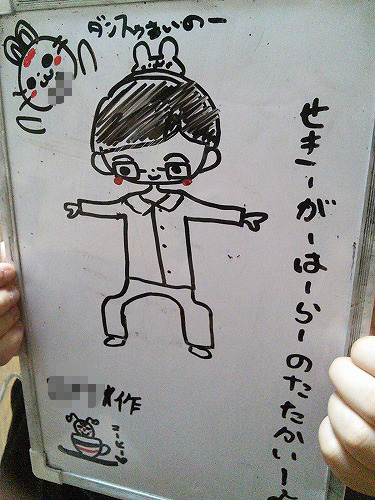 ダンスうまいのー
せきーがーはーらーのたたかいー
作
コーヒー